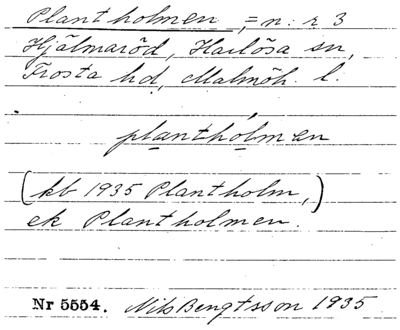 Plantholmen, = n:r 3
Hjälmaröd, Harlösa sn,
Frosta hd, Malmöh. l.
plantholmen
(kb 1935 Plantholm,)
ek Plantholmen.
Nr 5554. Nils Bengtsson 1935